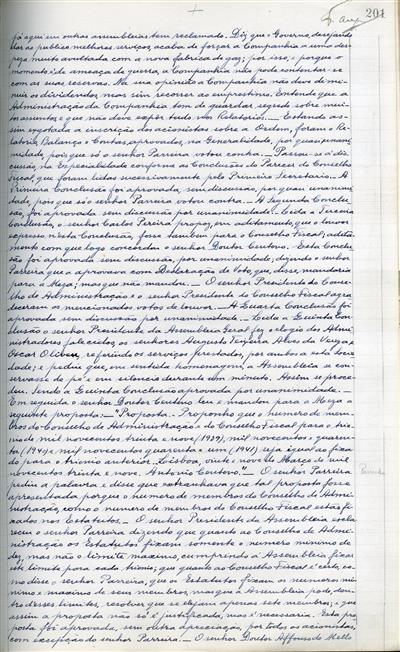 201
já aqui em outras assembleias tem reclamado. Diz que o Governo, desejando
dar ao publico melhores serviços, acaba de forçar a Companhia a uma des-
peza muito avultada com a nova fabrica de gaz; por isso, e porque o
momento é de ameaça de guerra, a Companhia não pode contentar-se
com as suas reservas. Na sua opinião a Companhia não deve dimi-
nuir os dividendos mas sim recorrer ao emprestimo. Entende que a
Administração da Companhia tem de guardar segredo sobre mui-
tos assuntos e que não deve expôr tudo nos Relatorios. — Estando as-
sim esgotada a inscrição dos acionistas sobre a Ordem, foram o Re-
latorio, Balanço e Contas, aprovados, na Generalidade, por quasi unani-
midade, pois que só o senhor Parreira votou contra. — Passou-se á dis-
cussão, na Especialidade, conforme as Conclusões do Parecer do Conselho
Fiscal, que foram lidas sucessivamente pelo Primeiro Secretario. — A
Primeira Conclusão foi aprovada, sem discussão, por quasi unanimi-
dade, pois que só o senhor Parreira votou contra. — A Segunda Conclu-
são, foi aprovada sem discussão por unanimidade. — Lida a Terceira
Conclusão, o senhor Carlos Pereira propoz, em aditamento, que o louvor
expresso nesta Conclusão, fosse tambem para o Conselho Fiscal, adita-
mento com que logo concordou o senhor Doutor Centeno. Esta Conclu-
são foi aprovada sem discussão, por unanimidade, dizendo o senhor
Parreira que a aprovava com Declaração de Voto, que disse, mandaria
para a Meza; mas que não mandou. — O senhor Presidente do Conse-
lho de Administração e o senhor Presidente do Conselho Fiscal agra-
deceram os mencionados votos de louvor. — A Quarta Conclusão foi
aprovada sem discussão por unanimidade. — Lida a Quinta Con-
clusão o senhor Presidente da Assembleia Geral fez o elogio dos Admi-
nistradores falecidos, os senhores Augusto Teixeira Alves da Veiga e
Oscar Oliven, referindo os serviços prestados, por ambos a esta socie-
dade; e pediu que, em sentida homenagem, a Assembleia se con-
servasse de pé e em silencio durante um minuto. Assim se proce-
deu. Sendo a Quinta Conclusão aprovada por unanimidade. —
Em seguida o senhor Doutor Centeno leu e mandou para a Meza a
seguinte proposta: — "Proposta. — Proponho que o numero de mem-
bros do Conselho de Administração e do Conselho Fiscal para o trie-
nio de mil novecentos trinta e nove (1939), mil novecentos quaren-
ta (1940) e mil novecentos quarenta e um (1941) seja igual ao fixa-
do para o trienio anterior. Lisboa, vinte e nove de Março de mil
novecentos trinta e nove. Antonio Centeno". — O senhor Parreira
pediu a palavra e disse que estranhava que tal proposta fosse
apresentada porque o numero de membros do Conselho de Admi-
nistração, como o numero de membros do Conselho Fiscal estão fi-
xados nos Estatutos. — O senhor Presidente da Assembleia escla-
receu o senhor Parreira dizendo que quanto ao Conselho de Admi-
nistração os Estatutos fixam somente o numero minimo de
dez, mas não o limite maximo, cumprindo á Assembleia fixar
este limite para cada trienio; que quanto ao Conselho Fiscal é certo, co-
mo disse o senhor Parreira, que os Estatutos fixam os numeros mi-
nimo e maximo de seus membros, mas que a Assembleia pode, den-
tro desses limites, resolver que se elejam apenas sete membros; e que
assim a proposta não só é justificada, mas é necessaria. Esta pro-
posta foi aprovada, sem outra apreciação, por todos os acionistas,
com excepção do senhor Parreira. — O senhor Doutor Affonso de Mello